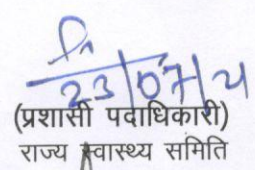 23/07/21
(प्रशासी पदाधिकारी)
राज्य स्वास्थ्य समिति